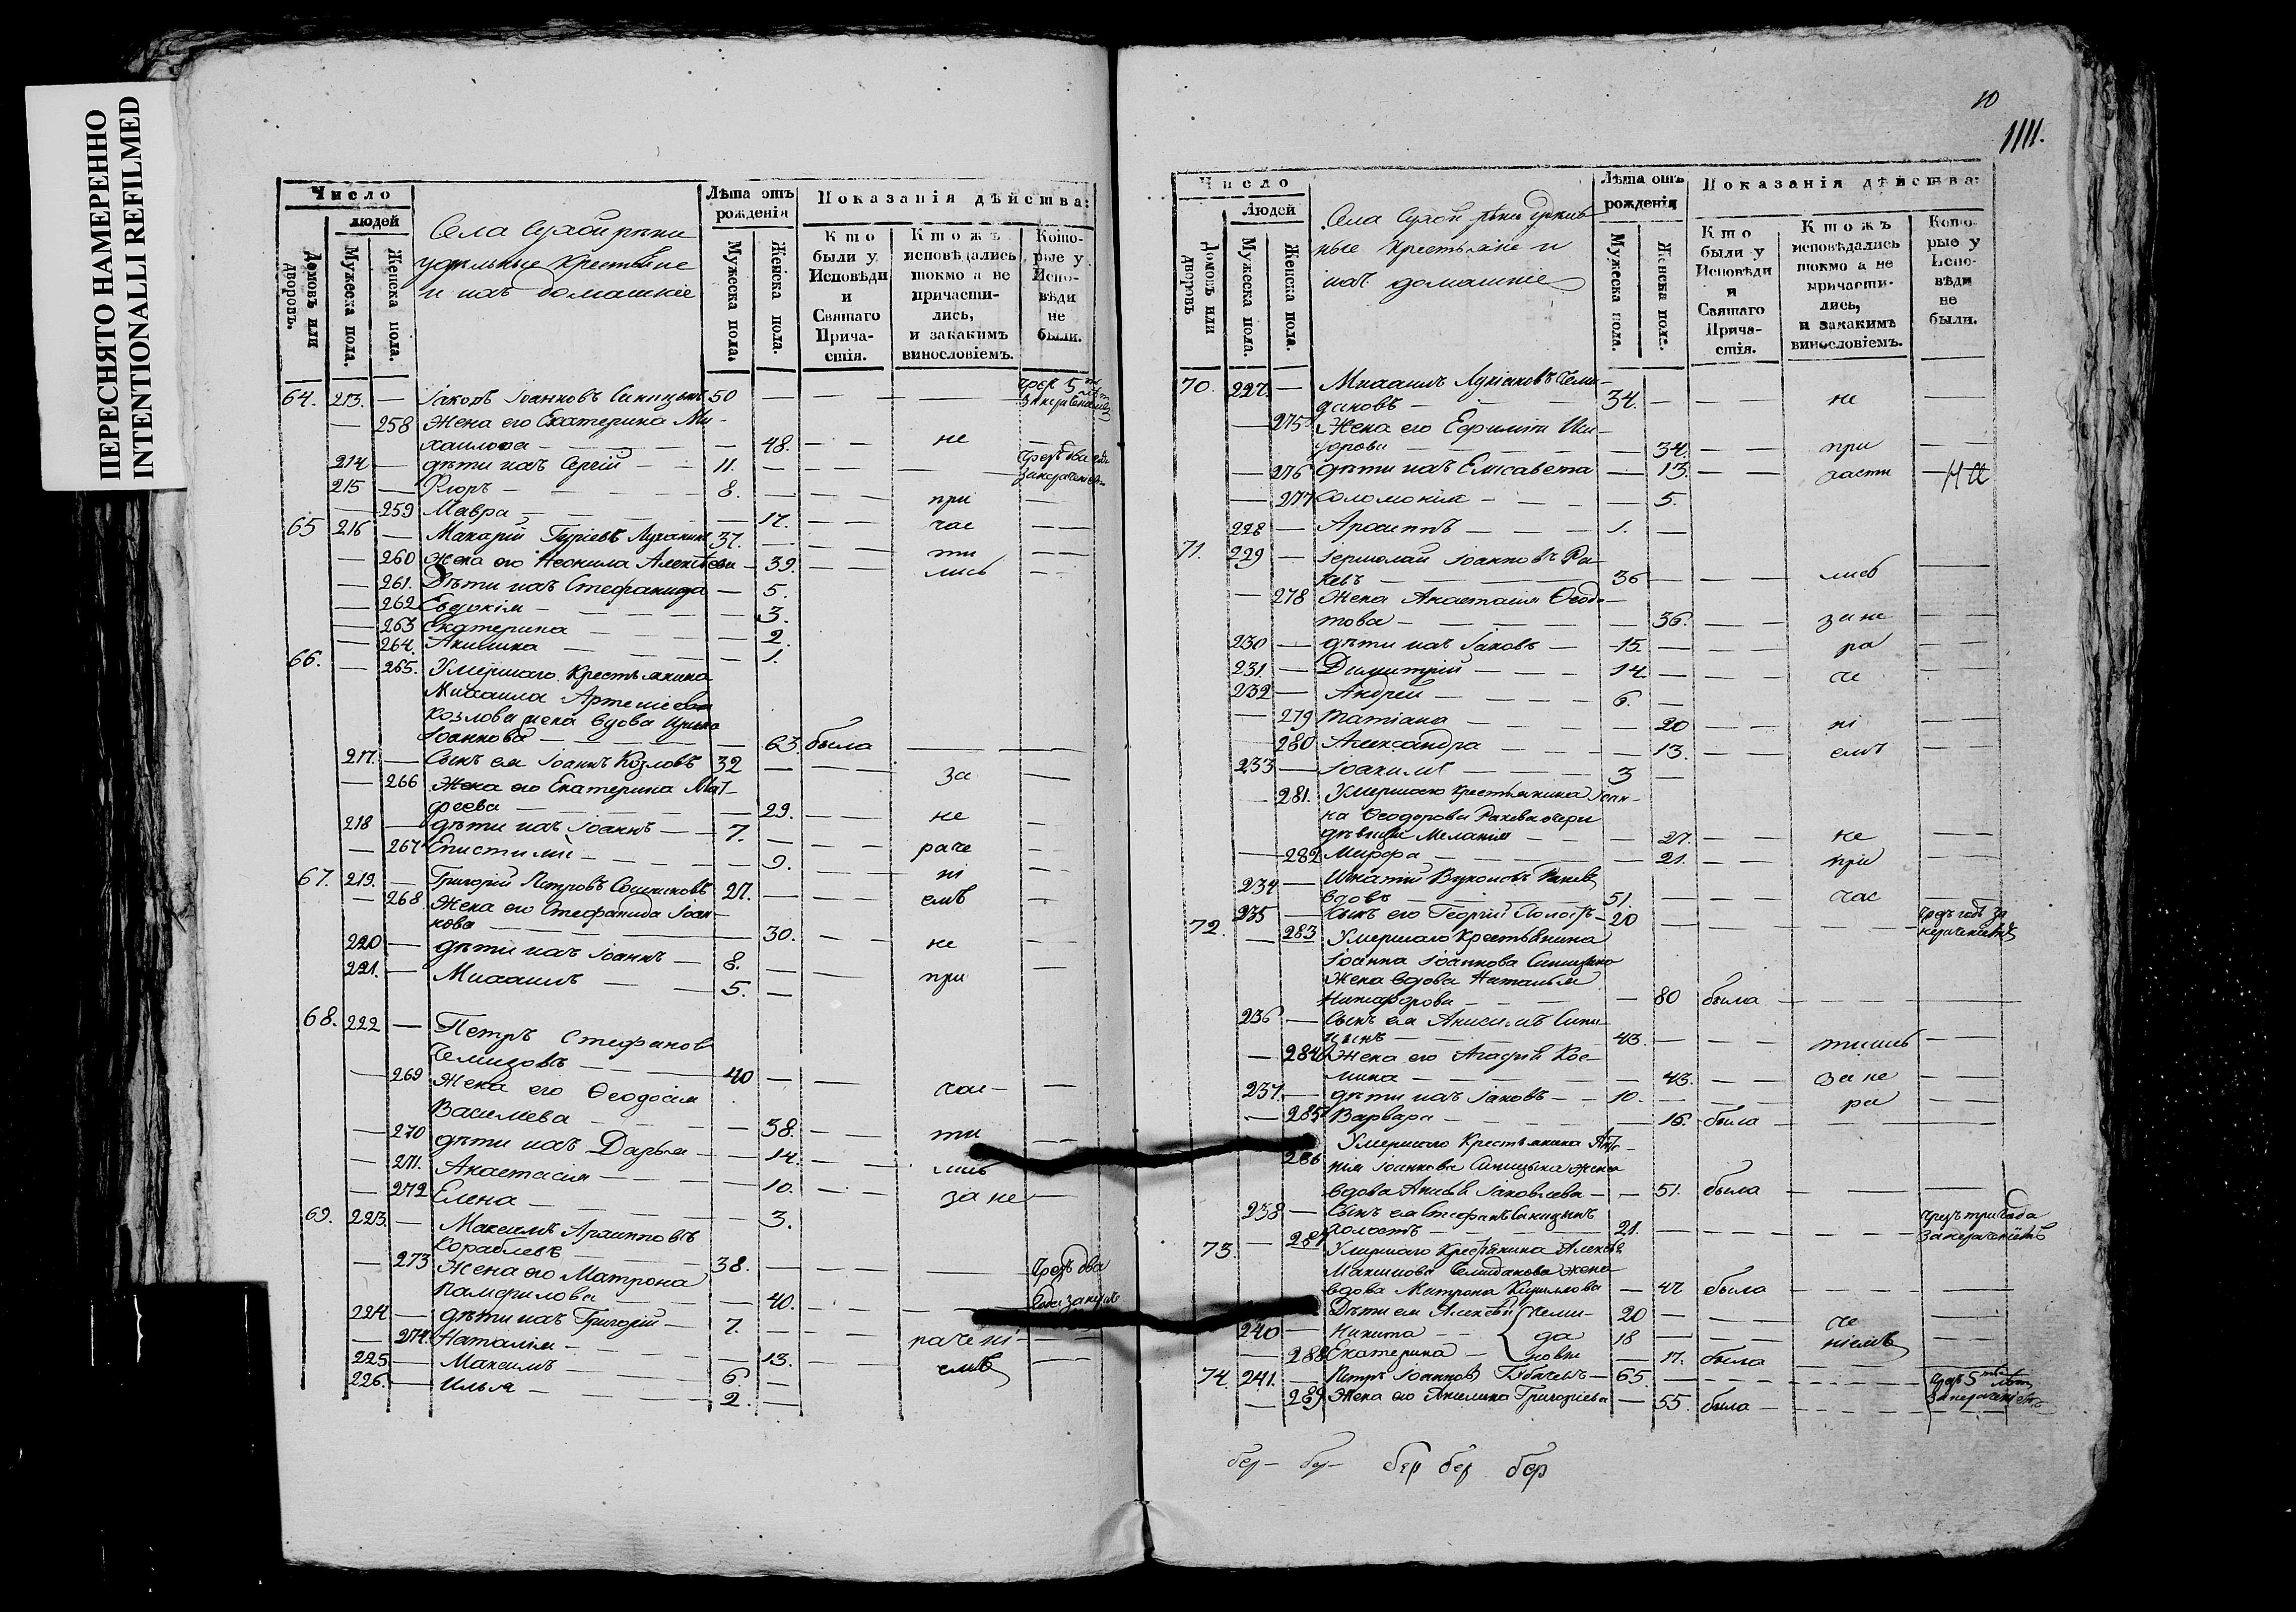 ПЕРЕСНЯТО НАМЕРЕННО
INTENTIONALLI REFILMED
Число
людей
Домовъ или дворовъ.
Мужеска пола.
Женска пола.
Села Сухой
удѣльные крестьяне
и ихъ домашние
Лѣта отъ рожденія
Мужеска пола.
Женска пола.
Показанія дѣйства:
Кто были у Исповѣди и Святаго Причастія.
Ктожъ исповѣдались токмо а не причастились, и закакимъ винословіемъ.
Которые у Исповѣди не были.
64. 213. — Іаковъ Іоанновъ Синицынъ 50 — — —
— 258 Жена его Екатерина Ми-
хаилова — — 48. — — не —
214 — дѣти ихъ Сергій — 11. — —
215 — Флоръ — 8. — — при
— 259 Мавра — — 17. — — час — —
65 216 — Макарій Гуріевъ 37. — — ти — —
— 260 Жена его Неонила Алексѣева — 39. — — лись — —
— 261. Дѣти ихъ Стефанида — 5.
— 262 Евдокія — — 3.
— 263 Екатерина — 2.
— 264. Акилина — 1.
66. — 265. Умершаго Крестьянина
Михаила Артемиева
Козлова жена вдова Ирина
Іоаннова — — 63 была — —
217. — Сынъ ея Іоаннъ Козловъ 32 — — за —
— 266 Жена его Екатерина Мат-
феева — — 29. — — не —
218 — дѣти ихъ Іоаннъ — 7. — — раче —
— 267 Епистимія — 9. — — ні —
67. 219. — Григорій Петровъ 27. — — емъ —
— 268. Жена его Стефанида Іоан-
нова — 30. — — не —
220 — дѣти ихъ Іоаннъ — 8. — —
221. — Михаилъ — 5. — при
68. 222 — Петръ Стефановъ
— 40 — —
— 269 Жена его Ѳеодосія час- —
Василиева — — 38. — — ти —
— 270 дѣти ихъ Дарья — 14. — — лись
— 271. Анастасія — — 10. — — за не —
— 272 Елена — — 3.
69. 223. — Максимъ Архиповъ
Кораблевъ — 38. — — — Чрезъ два
— 273 Жена его Матрона
Памфилова — 40. — — —
224 — дѣти ихъ Григорій — 7. — — рачені — —
— 274. Наталія — — 13. — — емъ —
225 — Максимъ — 6. —
226. — Илья — 2. —
10
1111.
Число
Людей
Домовъ или дворовъ
Мужеска пола.
Женска пола.
Села Сухой удѣль
ные крестьяне и
ихъ домашніе
Лѣта отъ рожденія
Мужеска пола.
Женска пола.
Показанія дѣйства:
Кто были у Исповѣди и Святаго Причастія.
Ктожъ исповѣдались токмо а не причастились, и закакимъ винословіемъ.
Которые у Исповѣди не были.
70. 227. — Михаилъ Лукіановъ Чели-
дановъ — 34. — — не —
— 275 Жена его
— 34. — — при —
— 276 дѣти ихъ Елисавета — 13. — — части —
— 277 Соломонія — — 5.
228 — Архиппъ — 1. —
71. 229 — Іермолай Іоанновъ Ра-
— 36 — — лись —
— 278 Жена Анастасія Ѳедо-
това — — 36. — — за не —
230 — дѣти ихъ Іаковъ — 15. — — ра — —
231. — Димитрій — 14. — — че —
232 — Андрей — 6. —
— 279 Татіана — — 20 — ні —
— 280 Александра — — 13. — емъ —
233 — Іоакимъ — 3 —
— 281. Умершаго крестьянина Іоан-
на Ѳеодорова дочери
дѣвицы Меланія — — 27. — — не —
— 282 Марфа — — 21. — — при —
234 — Игнатій
вдовъ — 51. — — час —
235 — Сынъ его Георгій Холостъ — 20 — — — Чрезъ годъ за
нераченіемъ
72. — 283 Умершаго Крестьянина
Іоанна Іоаннова Синицына
Жена вдова Наталья
Никифорова — — 80 была — —
236 — Сынъ ея Анисимъ Сини-
цынъ — 43. — — тились — —
— 284 Жена его Агафія Кос-
мина — — 43. — — за не —
237. — дѣти ихъ Іаковъ — 10. — — ра —
— 285 Варвара — — 16. была — —
286 Умершаго Крестьянина
Іоаннова Синицына жена
вдова Іаковлева — 51. была — —
238 — Сынъ ея Стефанъ Синицынъ
холостъ — 21. — — — Чрезъ три года
за нераченіемъ
73. — 287 Умершаго Крестьянина Алексѣя
Максимова Челидакова жена
вдова Матрона Кирилова — 47 была — —
Дѣти ея Алексѣй Чели- 20 — — че —
240 — Никита — да 18 — — ніемъ —
— 288 Екатерина — новы — 17. была — —
74. 241. — Петръ Іоанновъ — 65. — — —
— 289 Жена его Григоріева — 55. была — —
бер- бер- бер бер бер